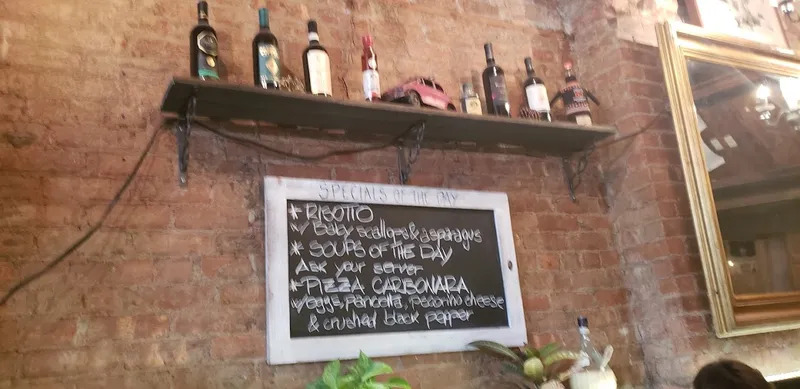 SPECIALS OF THE DAY
* RISOTTO
w/ Baby scallops & asparagus
* SOUPS OF THE DAY
Ask your server
* PIZZA CARBONARA
w/ eggs, pancetta, pecorino cheese
& crushed black pepper